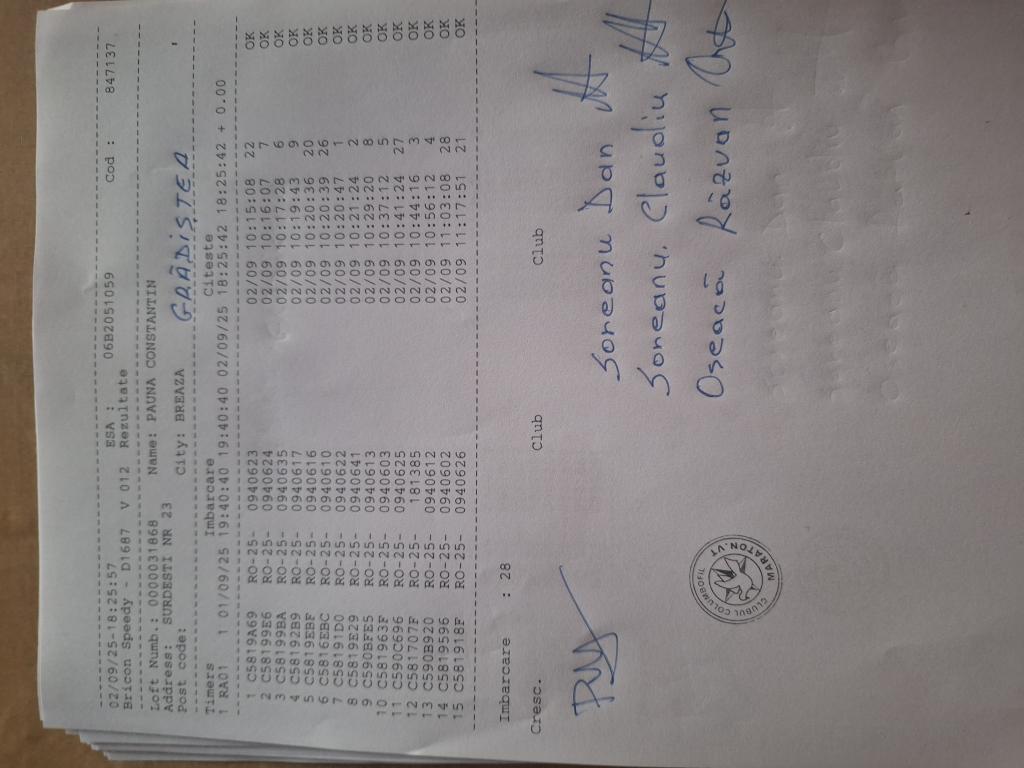 02/09/25-18:25:57 ESA : 06B2051059 Cod : 847137
Bricon Speedy - D1687 V 012 Rezultate
Loft Numb.: 0000031868 Name: PAUNA CONSTANTIN
Address: SURDESTI NR 23
Post code: City: BREAZA GRĂDIȘTEA
Timers Imbarcare Citeste
1 RA01 1 01/09/25 19:40:40 19:40:40 02/09/25 18:25:42 18:25:42 + 0.00
1 C5819A69 RO-25- 0940623 02/09 10:15:08 22 OK
2 C58199E6 RO-25- 0940624 02/09 10:16:07 7 OK
3 C58199BA RO-25- 0940635 02/09 10:17:28 6 OK
4 C58192B9 RO-25- 0940617 02/09 10:19:43 9 OK
5 C5819EBF RO-25- 0940616 02/09 10:20:36 20 OK
6 C5816EBC RO-25- 0940610 02/09 10:20:39 26 OK
7 C58191D0 RO-25- 0940622 02/09 10:20:47 1 OK
8 C5819E29 RO-25- 0940641 02/09 10:21:24 2 OK
9 C590BFE5 RO-25- 0940613 02/09 10:29:20 8 OK
10 C581963F RO-25- 0940603 02/09 10:37:12 5 OK
11 C590C696 RO-25- 0940625 02/09 10:41:24 27 OK
12 C581707F RO-25- 181385 02/09 10:44:16 3 OK
13 C590B920 RO-25- 0940612 02/09 10:56:12 4 OK
14 C5819596 RO-25- 0940602 02/09 11:03:08 28 OK
15 C581918F RO-25- 0940626 02/09 11:17:51 21 OK
Imbarcare : 28
Cresc. Club Club
Soneanu Dan
Soneanu Claudiu
Oseacă Răzvan
CLUBUL COLUMBOFIL
MARATON.VT